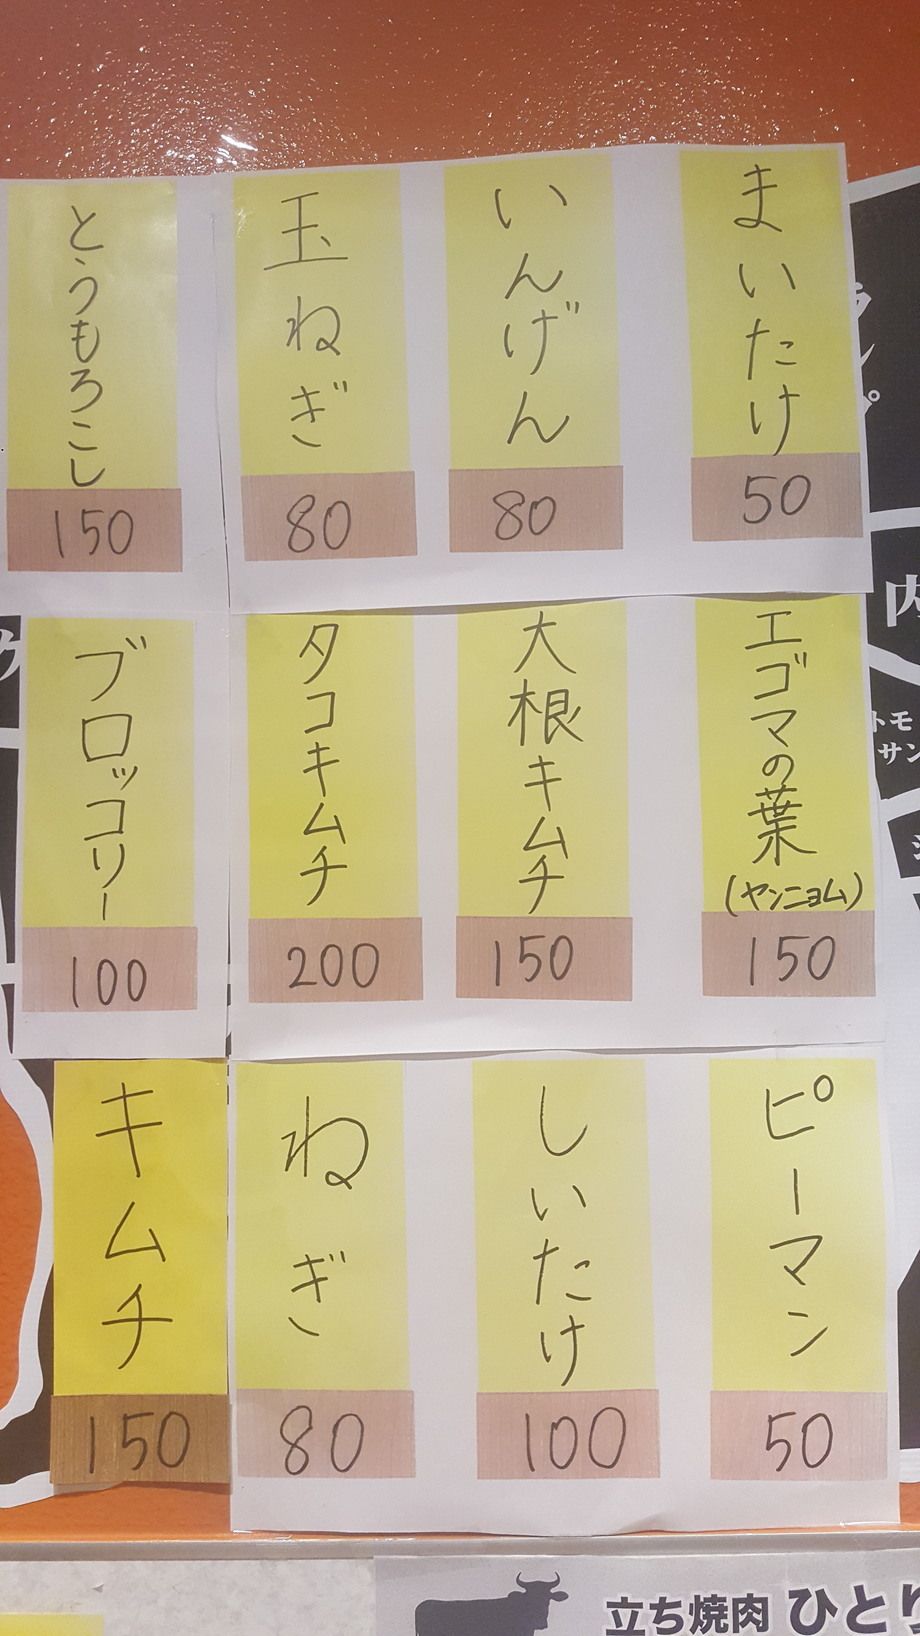 まいたけ
50
いんげん
80
玉ねぎ
80
とうもろこし
150
エゴマの葉
(ヤンニョム)
150
大根キムチ
150
タコキムチ
200
ブロッコリー
100
ピーマン
50
しいたけ
100
ねぎ
80
キムチ
150
内
トモ
サン
立ち焼肉 ひとり